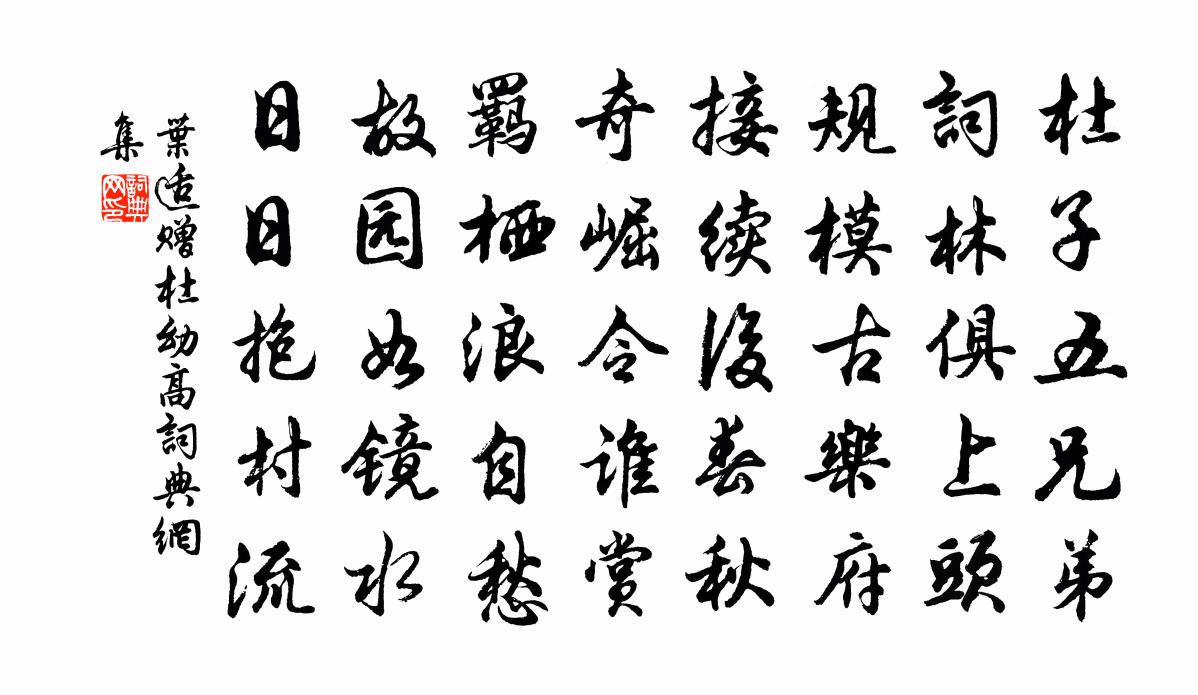 杜子五兄弟
詞林俱上頭
规模古樂府
接续後春秋
奇崛令谁賞
羁栖浪自愁
故园如镜水
日日抱村流
葉适赠杜幼高詞典網
集
詞典
网印